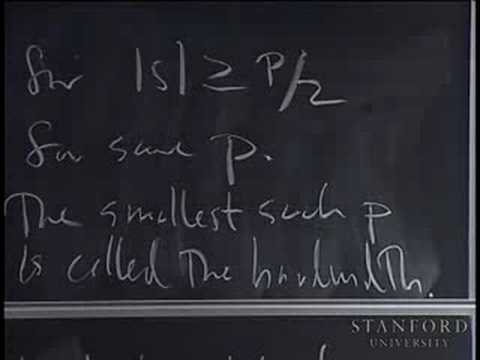 for |s| ≥ P/2
for some p.
The smallest such p
is called the bandwidth.
STANFORD
UNIVERSITY